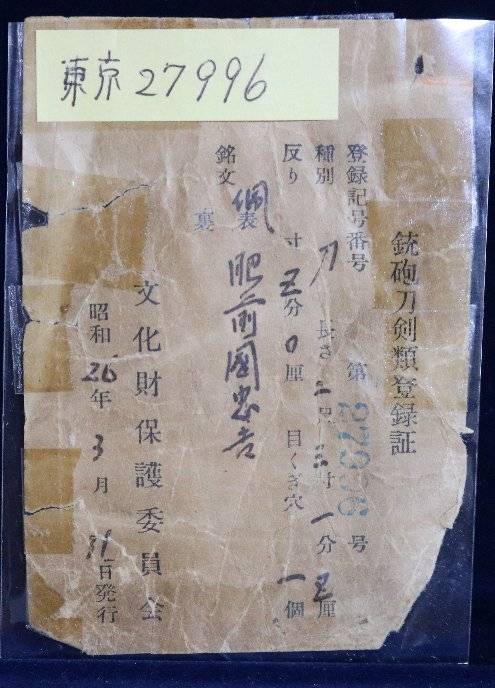 東京27996
銃砲刀剣類登録証
登録記号番号 第27996号
種別 刀 長さ二尺三寸一分五厘
反り 寸五分0厘 目くぎ穴 一個
銘文 佩表 肥前國忠吉
裏
文化財保護委員会
昭和26年3月31日発行